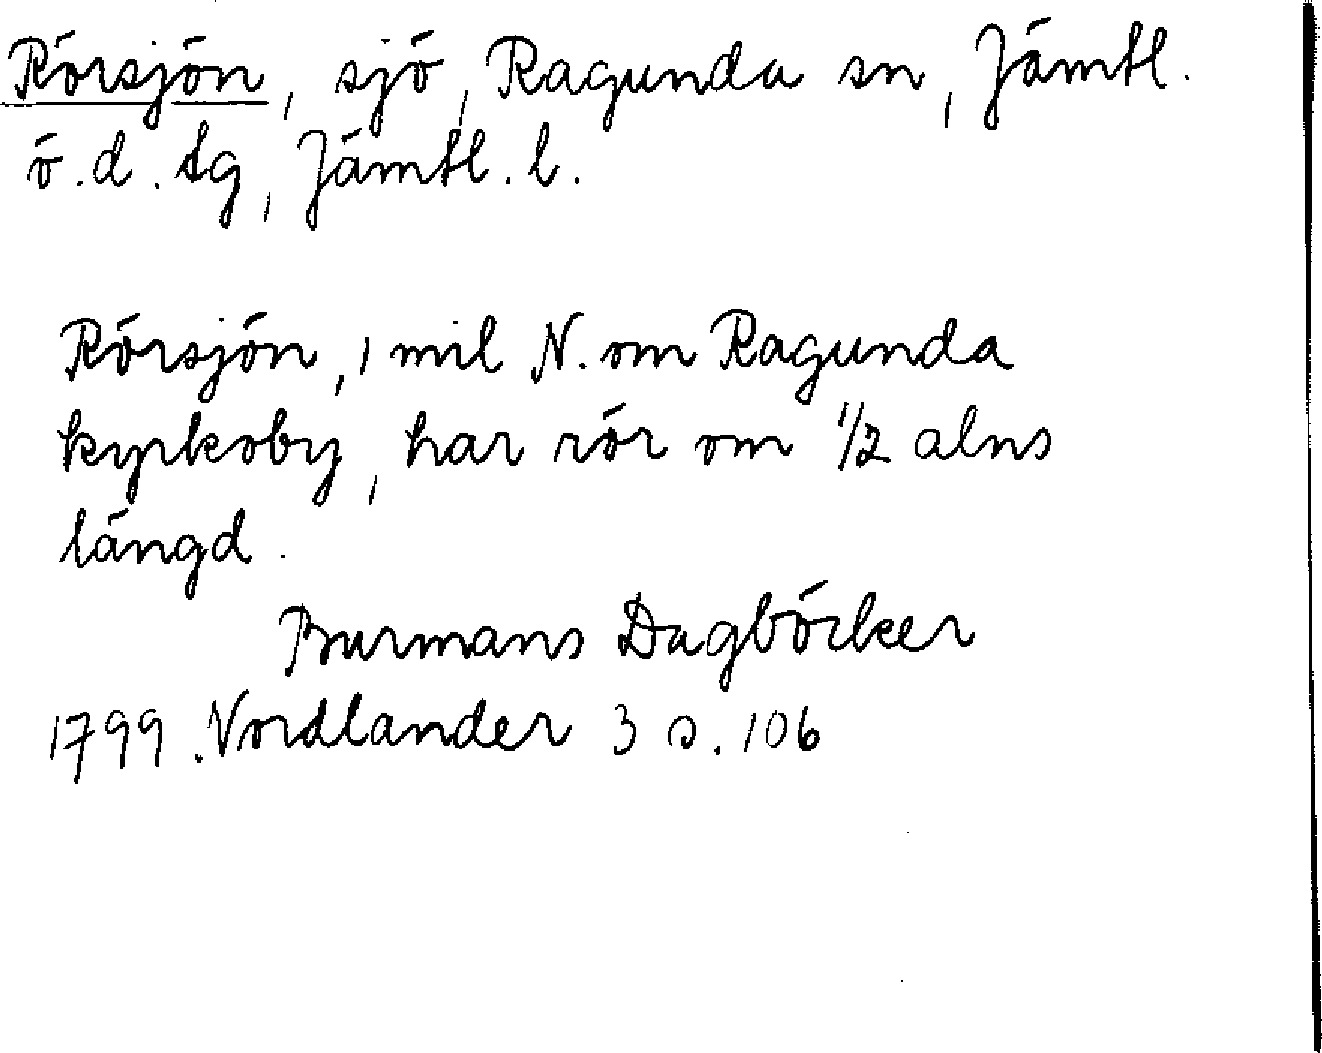 Rörsjön, sjö, Ragunda sn, Jämtl.
ö.d. tg, Jämtl. l.
Rörsjön, 1 mil N. om Ragunda
kyrkoby, har rör om 1/2 alns
längd.
Burmans Dagböcker
1799. Nordlander 3 s. 106